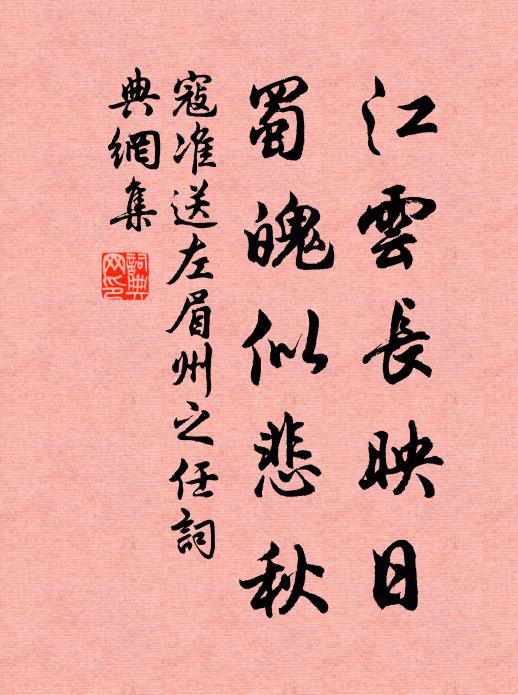 江雲長映日
蜀魄似悲秋
寇准送左眉州之任詞
典網集
詞典網印